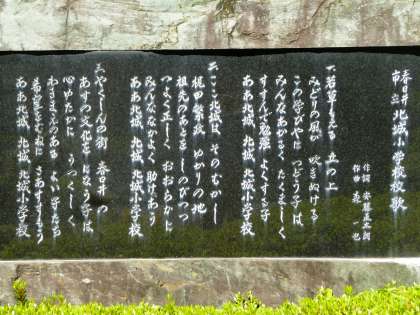 春日井市立 北城小学校校歌
作詞
作曲
一、若草もゆる 丘の上
みどりの風が 吹きぬける
この学びやに つどう子は
みんなあかるく たくましく
すすんで勉強 よくする子
ああ北城 北城 北城小学校
二、ここ北城は そのむかし
梶田繁政 ゆかりの地
祖先のあとを しのびつつ
つよく正しく おおらかに
みんななかよく 助けあう
ああ北城 北城 北城小学校
三、やくしんの街 春日井の
あすの文化を になう子は
心ゆたかに うつくしく
よい子たち
希望をむねに さあすすもう
ああ北城 北城 北城小学校